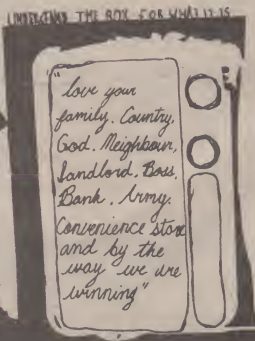 UNDERSTAND THE BOX FOR WHAT IT IS
"love your
family. Country,
God. Neighbour,
Landlord, Boss,
Bank. Army.
Convenience store
and by the
way we are
winning"